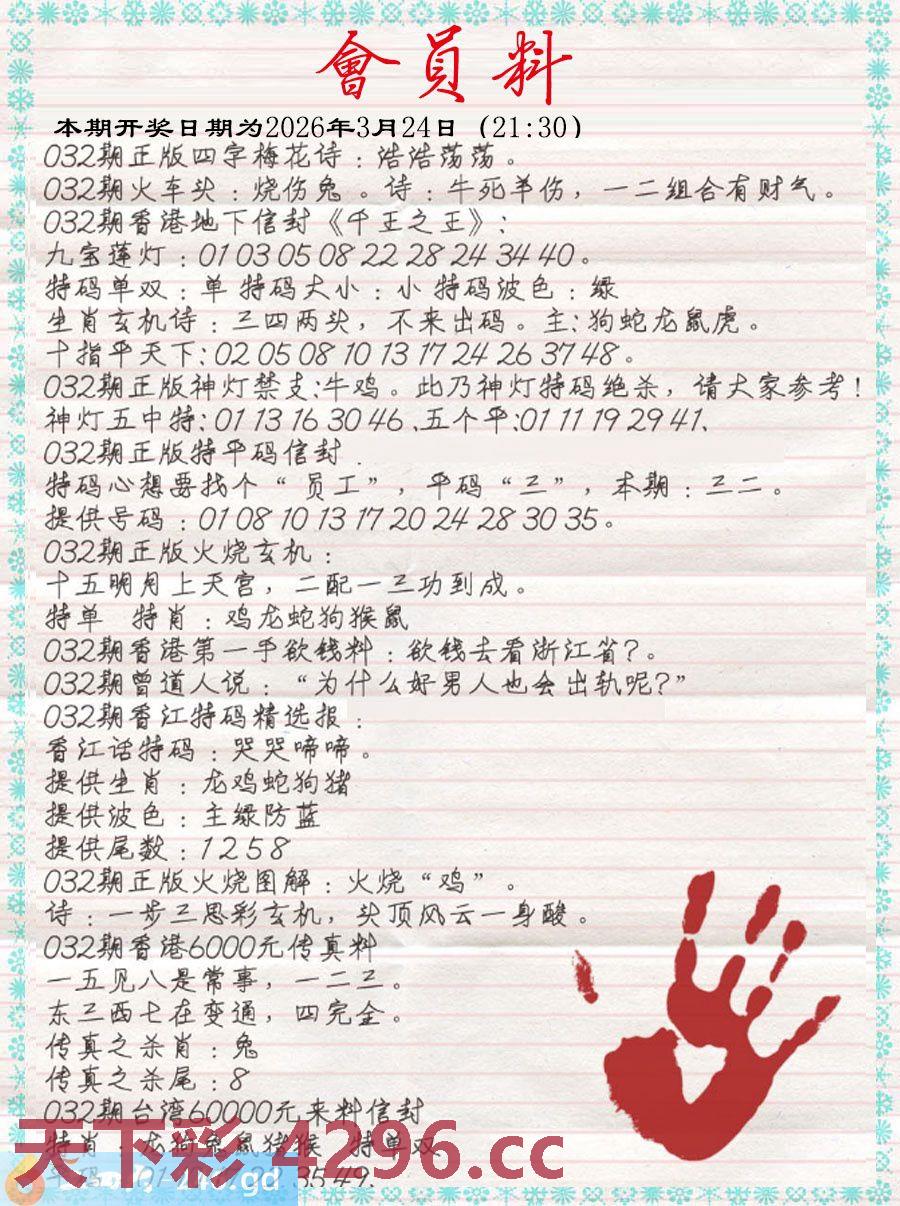 會員料
本期开奖日期为2026年3月24日（21:30）
032期正版四字梅花诗：浩浩荡荡。
032期火车头：烧伤兔 。诗：牛死羊伤，一二组合有财气。
032期香港地下信封《千王之王》：
九宝莲灯：01 03 05 08 22 28 24 34 40。
特码单双：单 特码大小：小 特码波色：绿
生肖玄机诗：三四两头，不来出码。主：狗蛇龙鼠虎。
十指平天下：02 05 08 10 13 17 24 26 37 48。
032期正版神灯禁支：牛鸡。此乃神灯特码绝杀，请大家参考！
神灯五中特：01 13 16 30 46 .五个平：01 11 19 29 41.
032期正版特平码信封 .
特码心想要找个“员工”，平码“三”，本期：三二。
提供号码：01 08 10 13 17 20 24 28 30 35。
032期正版火烧玄机：
十五明月上天宫，二配一三功到成。
特单 特肖：鸡龙蛇狗猴鼠
032期香港第一手欲钱料：欲钱去看浙江省？。
032期曾道人说：“为什么好男人也会出轨呢？”
032期香江特码精选报：
香江话特码：哭哭啼啼。
提供生肖：龙鸡蛇狗猪
提供波色：主绿防蓝
提供尾数：1 2 5 8
032期正版火烧图解：火烧“鸡”。
诗：一步三思彩玄机，头顶风云一身酸。
032期香港6000元传真料
一五见八是常事，一二三。
东三西七在变通，四完金。
传真之杀肖：兔
传真之杀尾：8
032期台湾60000元来料信封
特肖：龙狗兔鼠猪猴 特单双
35 49.
天下彩 4296.cc